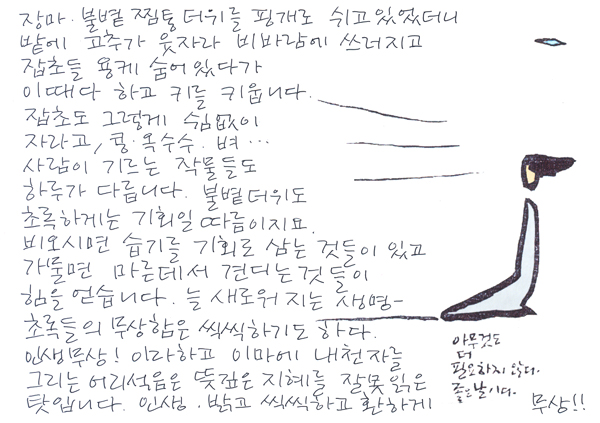 장마·불볕 찜통더위를 핑개로 쉬고있었더니
밭에 고추가 웃자라 비바람에 쓰러지고
잡초들 용케 숨어있다가
이때다 하고 키를 키웁니다.
잡초도 그렇게 쉼없이
자라고, 콩·옥수수·벼…
사람이 기르는 작물들도
하루가 다릅니다. 불볕더위도
초록하게는 기회일 따름이지요.
비오시면 습기를 기회로 삼는 것들이 있고
가물면 마른데서 견디는것들이
힘을 얻습니다. 늘 새로워지는 생명-
초록들의 무상함은 씩씩하기도 하다.
인생무상! 이라하고 이마에 내천자를
그리는 어리석음은 뜻깊은 지혜를 잘못읽은
탓입니다. 인생·밝고 씩씩하고 환하게 무상!!
아무것도
더
필요하지 않다.
좋은날이다.